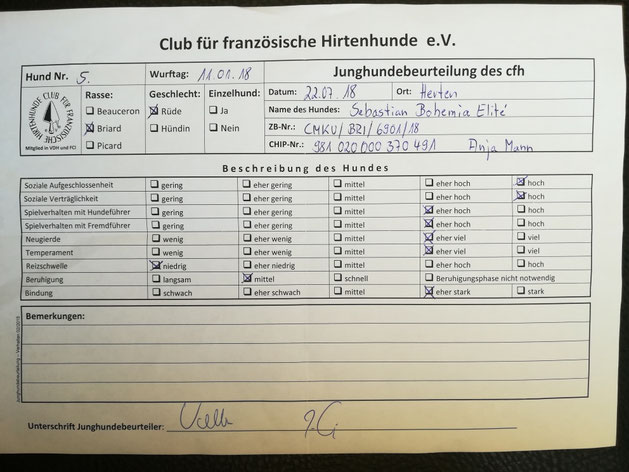 Club für französische Hirtenhunde e.V.
Hund Nr. 5. Wurftag: 11.01.18 Junghundebeurteilung des cfh
Rasse: Geschlecht: Einzelhund: Datum: 22.07.18 Ort: Herten
☐ Beauceron ☒ Rüde ☐ Ja Name des Hundes: Sebastian Bohemia Elité
☒ Briard ☐ Hündin ☐ Nein ZB-Nr.: CMKU/BRI/6901/18
☐ Picard CHIP-Nr.: 981 020 000 370 491 Anja Mann
CLUB FÜR FRANZÖSISCHE HIRTENHUNDE
Mitglied in VDH und FCI
Beschreibung des Hundes
Soziale Aufgeschlossenheit ☐ gering ☐ eher gering ☐ mittel ☐ eher hoch ☒ hoch
Soziale Verträglichkeit ☐ gering ☐ eher gering ☐ mittel ☐ eher hoch ☒ hoch
Spielverhalten mit Hundeführer ☐ gering ☐ eher gering ☐ mittel ☒ eher hoch ☐ hoch
Spielverhalten mit Fremdführer ☐ gering ☐ eher gering ☐ mittel ☒ eher hoch ☐ hoch
Neugierde ☐ wenig ☐ eher wenig ☐ mittel ☒ eher viel ☐ viel
Temperament ☐ wenig ☐ eher wenig ☐ mittel ☒ eher viel ☐ viel
Reizschwelle ☒ niedrig ☐ eher niedrig ☐ mittel ☐ eher hoch ☐ hoch
Beruhigung ☐ langsam ☒ mittel ☐ schnell ☐ Beruhigungsphase nicht notwendig
Bindung ☐ schwach ☐ eher schwach ☐ mittel ☒ eher stark ☐ stark
Bemerkungen:
Unterschrift Junghundebeurteiler: